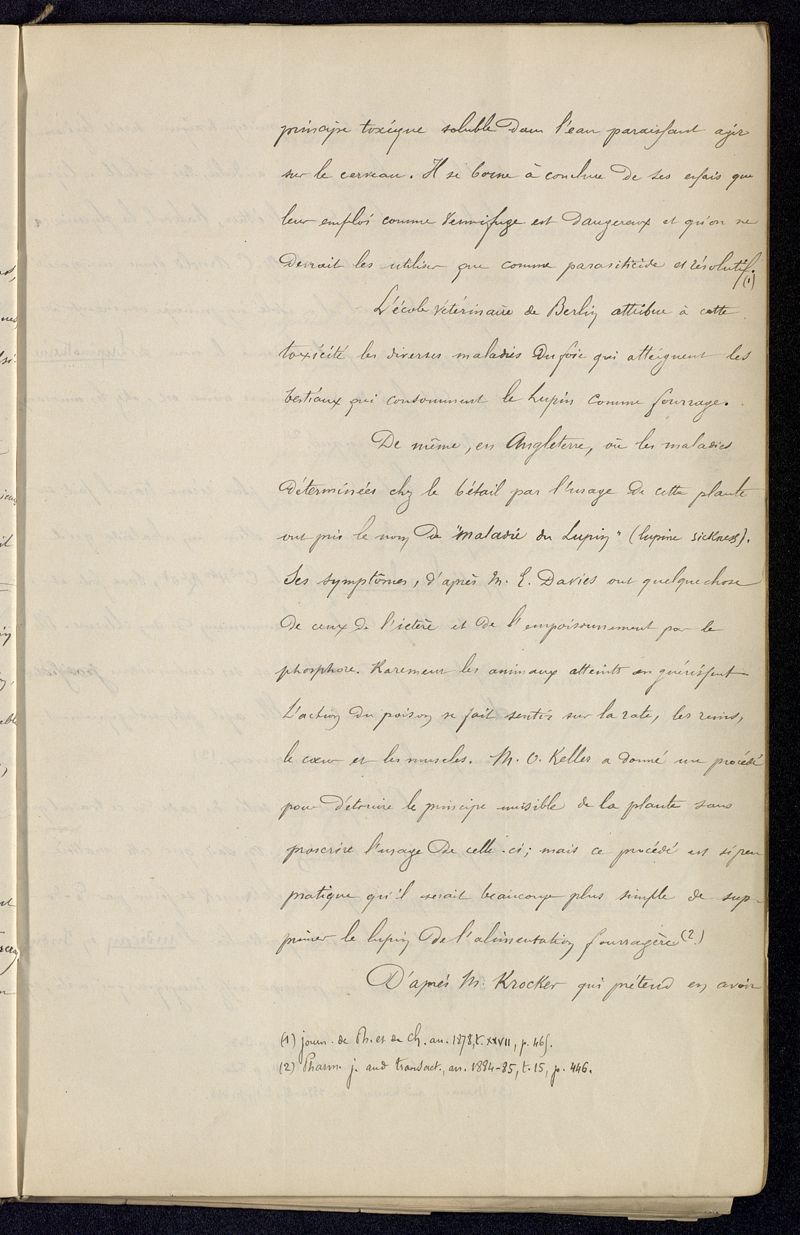 principe toxique soluble dans l'eau paraissant agir
sur le cerveau. Il se borne à conclure de ses essais que
leur emploi comme vermifuge est dangereux et qu'on ne
devrait les utiliser que comme parasiticide et résolutif. (1)
L'école vétérinaire de Berlin attribue à cette
toxicité les diverses maladies du foie qui atteignent les
bestiaux qui consomment le Lupin comme fourrage.
De même, en Angleterre, où les maladies
déterminées chez le bétail par l'usage de cette plante
ont pris le nom de "maladie du Lupin" (lupine sickness).
Ses symptômes, d'après M. E. Davies ont quelque chose
de ceux de l'ictère et de l'empoisonnement par le
phosphore. Rarement les animaux atteints en guérissent
L'action du poison se fait sentir sur la rate, les reins,
le cœur et les muscles. M. O. Keller a donné un procédé
pour détruire le principe nuisible de la plante sans
proscrire l'usage de celle-ci; mais ce procédé est si peu
pratique qu'il serait beaucoup plus simple de sup-
primer le lupin de l'alimentation fourragère (2)
D'après M. Krocker qui prétend en avoir
(1) journ. de Ph. et de Ch. an. 1878, t. XXVII, p. 465.
(2) Pharm. j. and transact., an. 1884-85, t. 15, p. 446.